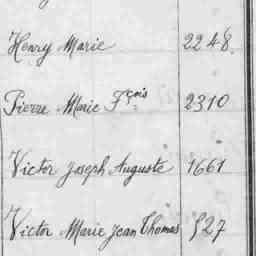 Henry Marie 2248
Pierre Marie Fçois 2310
Victor Joseph Auguste 1661
Victor Marie Jean Thomas 527